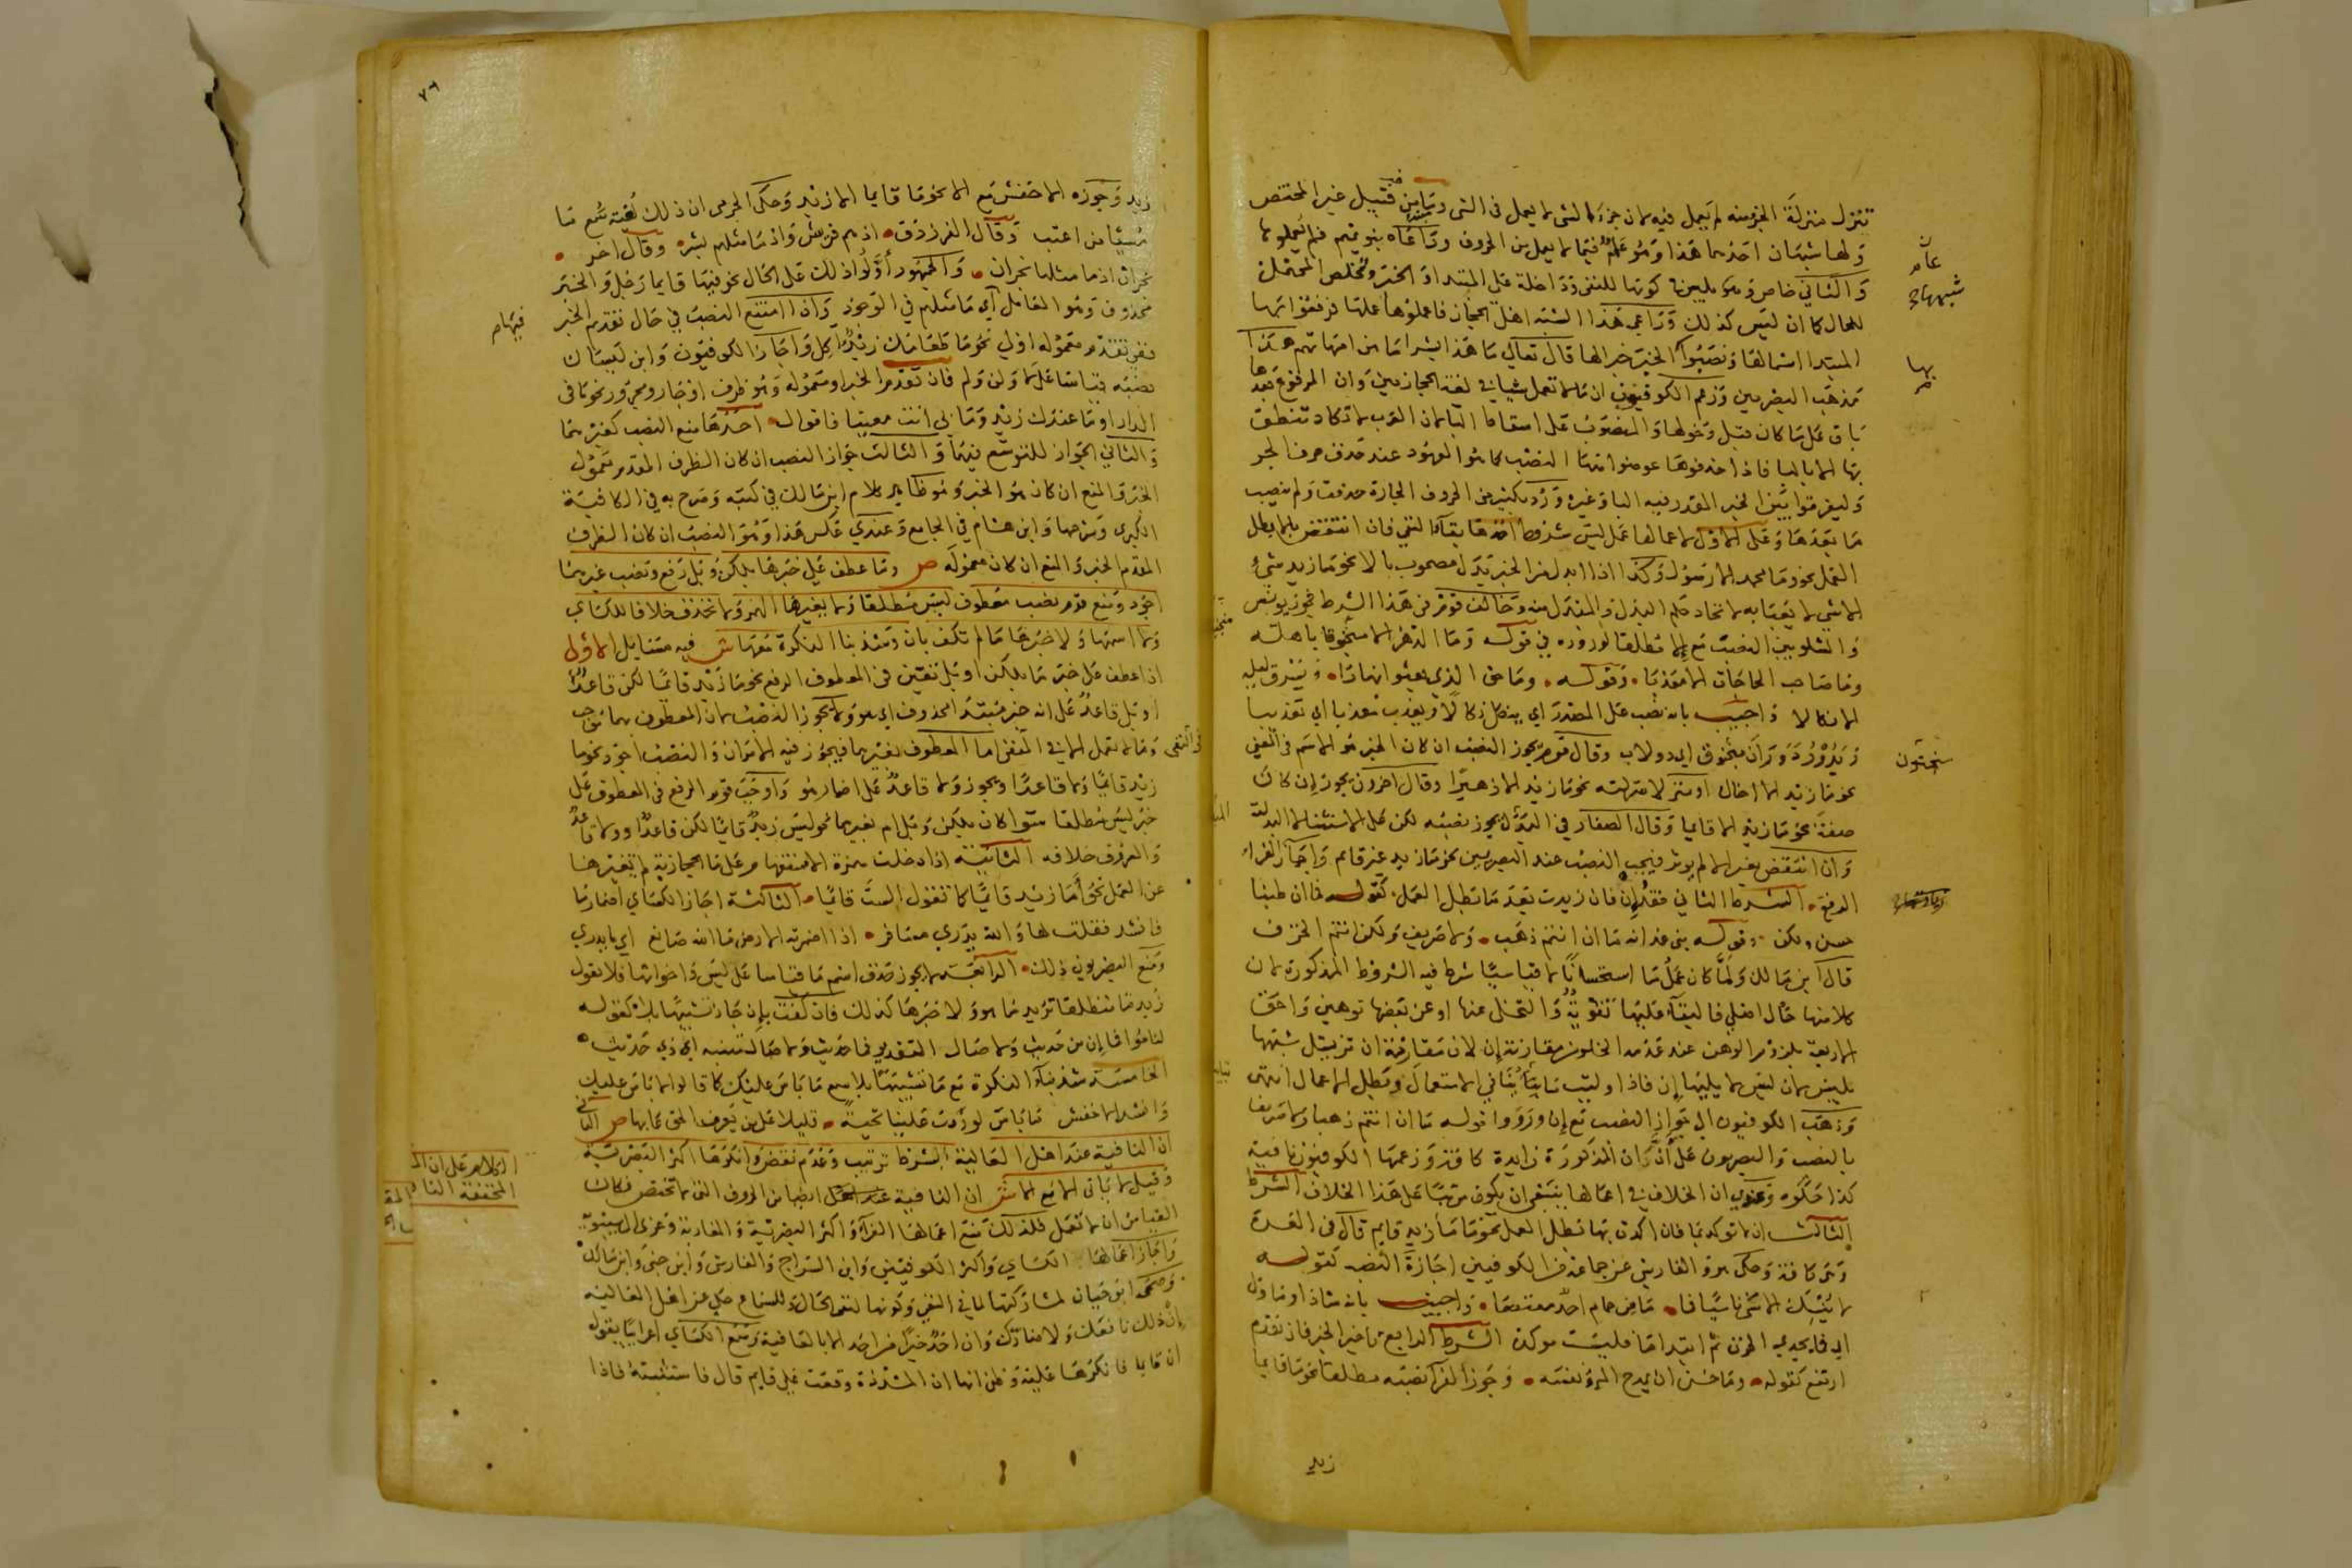 تتنزل منزلة الجزء منه لم يعمل فيه لان جزء الشي لا يعمل في الشي وما من قبيل غير المختص
ولها شبهان احدهما هذا وهو عام فيما لا يعمل من الحروف وراعاه بنو تميم فلم يعملوها
والثاني خاص وهو بليس في كونها للنفي وداخلة على المبتدا والخبر وتخلص المحتمل
للحال كما ان ليس كذلك وراعى هذا الشبه اهل الحجاز فاعملوها عملها فرفعوا بها
المبتدا اسما لها ونصبوا الخبر خبرا لها قال تعالى ما هذا بشرا ما هن امهاتهم هذا
مذهب البصريين وزعم الكوفيون ان ما لا تعمل شيا في لغة الحجازيين وان المرفوع بعدها
باق على ما كان قبل دخولها والمنصوب على اسقاط البا لان العرب لا تكاد تنطق
بها الا بالبا فاذا حذفوها عوضوا منها النصب كما هو المعهود عند حذف حرف الجر
وليفرقوا بين الخبر المقدر فيه البا وغيره ورد بكثير من الحروف الجارة حذفت ولم ينصب
ما بعدها وعلى الاول لاعمالها عمل ليس شروط احدها بقاء النفي فان انتقض بالا بطل
العمل نحو وما محمد الا رسول وكذا اذا ابدل من الخبر بدل مصحوب بالا نحو ما زيد شيء
الا شي لا يعبا به لاتحاد حكم البدل والمبدل منه وخالف قوم في هذا الشرط فجوز يونس
والشلوبين النصب مع الا مطلقا لوروده في قوله وما الدهر الا منجنونا باهله
وما صاحب الحاجات الا معذبا وقوله وما حق الذي يعثو نهارا ويسرق ليله
الا نكالا واجيب بانه نصب على المصدر اي ينكل نكالا ويعذب معذبا اي تعذيبا
ويدور دوران منجنون اي دولاب وقال قوم يجوز النصب ان كان الخبر هو الاسم في المعنى
نحو ما زيد الا اخاك او منزلا منزلته نحو ما زيد الا زهيرا وقال اخرون يجوز ان كان
صفة نحو ما زيد الا قايما وقال الصفار في الاول يجوز نصبه لكن على الاستثنا لا البدلية
وان انتقض بغير الا لم يوثر فيجب النصب عند البصريين نحو ما زيد غير قايم واجاز الفراء
الرفع الشرط الثاني فقد ان فان زيدت بعد ما تبطل العمل كقوله فما ان طبنا
جبن ولكن وقوله بني غدانة ما ان انتم ذهب ولا صريف ولكن انتم الخزف
قال ابن مالك ولما كان عمل ما استحسانا لا قياسيا شرط فيه الشروط المذكورة لان
كلا منها حال اصلي فالبقاء عليها تقوية والتخلي عنها او عن بعضها توهين واحق
الاربعة بلزوم الوهن عند عدمه الخلو من مقارنة ان لان مقارنة ان تزيل شبهها
بليس لان ليس لا يليها ان فاذا وليت ما باينا في الاستعمال وبطل الاعمال انتهى
وذهب الكوفيون الى جواز النصب مع ان ورووا قوله ما ان انتم ذهبا ولا صريفا
بالنصب والبصريون على ان ان المذكورة زايدة كافة وزعمها الكوفيون نافية
كذا حكوه وعندي ان الخلاف في اعمالها ينبغي ان يكون مرتبا على هذا الخلاف الشرط
الثالث ان لا توكد بما فان اكدت بها بطل العمل نحو ما ما زيد قايم قال في الغرة
وتكرر كافة وحكى هو والفارسي عن جماعة من الكوفيين اجازة النصب كقوله
لا ينسك الاسى تاسيا فما ما من حمام احد معتصما واجيب بانه شاذ او ماول
اي فما يجدي الحزن ثم ابتدا ما فليست موكدة الشرط الرابع تاخير الخبر فان تقدم
ارتفع كقوله وما حسن ان يمدح المرء نفسه وجوز الفرا نصبه مطلقا نحو ما قايما
عام
شبهها
بها
منجنون
زيد
٧٦
زيد وجوزه الاخفش مع الا نحو ما قايما الا زيد وحكى الجرمي ان ذلك لغية سمع ما
مسيا من اعتب وقال الفرزدق اذ هم قريش واذ ما مثلهم بشر وقال اخر
نجران اذ ما مثلها نجران والجمهور أولوا ذلك على الحال نحو فيها قايما رجل والخبر
محذوف وهو العامل اي ما مثلهم في الوجود وان امتنع النصب في حال تقديم الخبر
فمع تقدم معموله اولى نحو ما طعامك زيد اكل واجاز الكوفيون وابن كيسان
نصبه قياسا على لا ولن ولم فان تقدم الخبر او معموله وهو ظرف او جار ومجرور نحو ما في
الدار او ما عندك زيد وما بي انت معنيا فاقوال احدها منع النصب كغيرهما
والثاني الجواز للتوسع فيهما والثالث جواز النصب ان كان الظرف المقدم معمول
الخبر والمنع ان كان هو الخبر وهو ظاهر كلام ابن مالك في كتبه وصرح به في الكافية
الكبرى وشرحها وابن هشام في الجامع وعندي عكس هذا وهو النصب ان كان الظرف
المقدم الخبر والمنع ان كان معموله ص وما عطف على خبرها بلكن وبل رفع ونصب غيرهما
اجود ومنع قوم نصب معطوف ليس مطلقا ولا يغيرها الهمزة ولا تحذف خلافا للكساي
ولا اسمها ولا خبرها ما لم تكف بان وشذ بنا النكرة معها ش فيه مسايل الاولى
اذا عطف على خبر ما بلكن او بل تعين في المعطوف الرفع نحو ما زيد قائما لكن قاعد
او بل قاعد على انه خبر مبتدا محذوف اي هو ولا يجوز النصب لان المعطوف بهما موجب
وما لا تعمل الا في المنفي اما المعطوف بغيرهما فيجوز فيه الامران والنصب اجود نحو ما
زيد قائما ولا قاعدا ويجوز ولا قاعد على اضمار هو واوجب قوم الرفع في المعطوف على
خبر ليس مطلقا سوا كان بلكن وبل ام بغيرهما نحو ليس زيد قائما لكن قاعدا ولا قاعد
والمعروف خلافه الثانية اذا دخلت همزة الاستفهام على ما الحجازية لم تغيرها
عن العمل نحو أما زيد قائما كما تقول الست قائما الثالثة اجاز الكساي اضمار ما
فانشد فقلت لها والله يدري مسافر اذا اضمرته الارض ما الله صانع اي ما يدري
ومنع البصريون ذلك الرابعة لا يجوز حذف اسم ما قياسا على ليس واخواتها فلا تقول
زيد ما منطلقا تريد ما هو ولا خبرها كذلك فان كفت بان جاز تشبيها بلا كقوله
لناموا فما ان من حديث ولا صال التقدير فما حديث ولا صال تنبيه اي ذي حديث
الخامسة شذ بناء النكرة مع ما تشبيها بلا سمع ما باس عليك كما قالوا لا باس عليك
وانشد الاخفش ما باس لو ردت علينا تحية قليلا على من يعرف الحق عابها ص الثاني
ان النافية عند اهل العالية بشرط ترتيب وعدم نقض وانكرها اكثر البصرية
وقيل لا ياتي الا مع الا ش ان النافية عند العمل ايضا من الحروف التي لا تختص فكان
القياس ان لا تعمل فلذلك منع اعمالها الفراء واكثر البصرية والمغاربة وعزي الى سيبويه
واجاز اعمالها الكساي واكثر الكوفيين وابن السراج والفارسي وابن جني وابن مالك
وصححه ابو حيان لمشاركتها لما في النفي وكونها لنفي الحال وللسماع حكي عن اهل العالية
ان ذلك نافعك ولا ضارك وان احد خيرا من احد الا بالعافية وسمع الكساي اعرابيا يقول
ان قايما فانكرها عليه وظن انها ان المشددة وقعت على قايم قال فاستثبته فاذا
فيها
في النفي